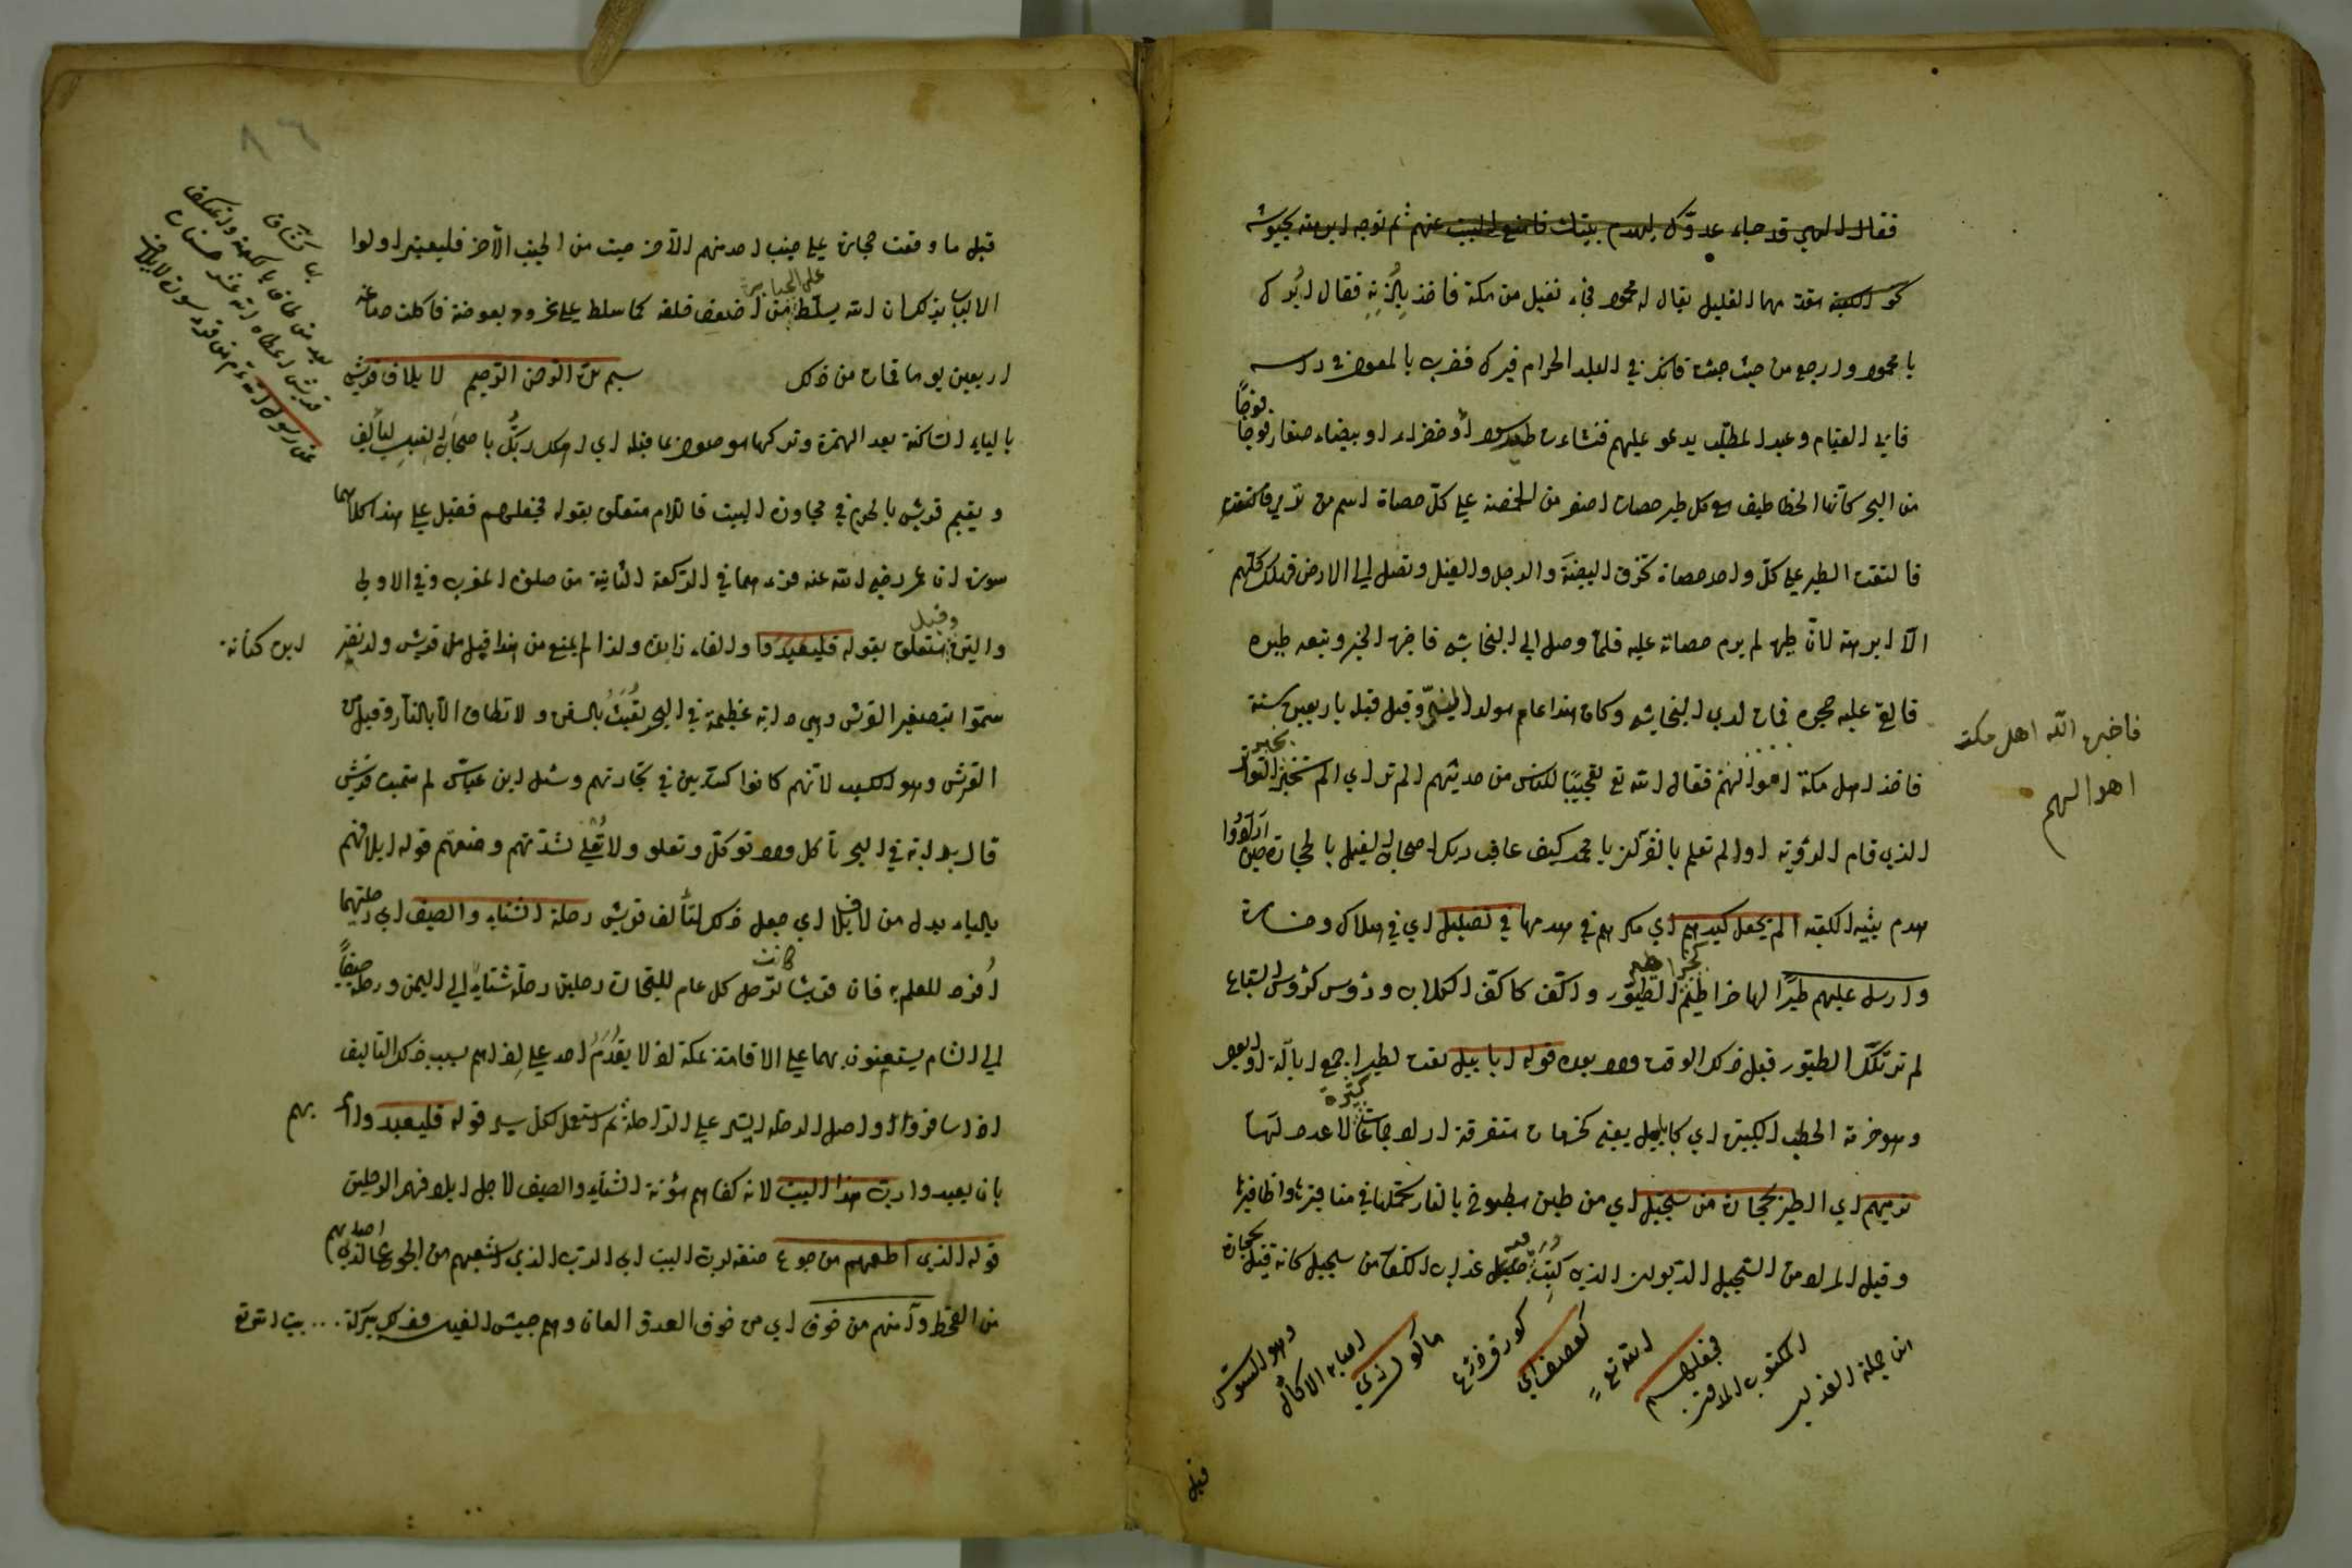 فقال اللهم قد جاء عدوّك لهدم بيتك فامنع البيت عنهم ثم توجه ابرهة بجيوشه
نحو الكعبة مقدما الفيل يقال له محمود فجاء نفيل من مكة فاخذ باذنه فقال ابرك
يا محمود وارجع من حيث جئت فانك في البلد الحرام فبرك فضرب بالمعول في رأسه
فابى القيام وعبد المطلب يدعو عليهم فنشاءت طير سود او خضراء او بيضاء صغار فوجًا فوجًا
من البحر كأنها الخطاطيف مع كل طير حصات اصغر من الحمصة على كلّ حصاة اسم من ترمى
فالتقت الطير على كلّ واحد حصاة تخرق البيضة والرجل والفيل وتصل الى الارض فهلك كلهم
الّا ابرهة لانّ طيره لم يرم حصاته عليه فلمّا وصل الى النجاشي فاخبره الخبر وتبعه طيره
فالقى عليه حجره فمات لدى النجاشي وكان هذا عام مولد النبيّ وقيل قبله باربعين سنة
فاخذ اهل مكة اموالهم فقال الله تع تعجيبًا للناس من حديثهم الم تر اي الم تخبر
الذي قام الرؤية اولم تعلم بالقرآن يا محمد كيف عاقب ربك اصحاب الفيل بالحجارة حين ارادوا
هدم بيته الكعبة الم يجعل كيدهم اي مكرهم في هدمها في تضليل اي في هلاك وخسارة
وارسل عليهم طيرًا لها خراطيم الطيور واكف كاكف الكلاب ورؤس كرؤس السباع
لم تر تلك الطيور قبل ذلك الوقت ولا بعده قوله ابابيل نعت لطيرا جمع ابالة
وهو حزمة الحطب الكبيرة اي كابابيل يعنى كحزمات متفرقة اراد جماعات كثيرة لا عدد لها
ترميهم اي الطير بحجارة من سجيل اي من طين مطبوخ بالنار تحملها في مناقيرها واظافيرها
وقيل المراد من السجيل الديوان الذي كتب فيه عذاب الكفار من سجيل كانه قيل بحجارة
من جملة العذاب
المكتوب المدون
فجعلهم
الله تع
كعصف اي
كورق زرع
مأكول اي
اصابه الاكال
وهو السوس
قبل
فاخبره الله اهل مكة
اموالهم
٨٦
قيل ما وقعت حجارة على جنب احد منهم الا خرجت من الجنب الآخر فليعتبر اولوا
الالباب بذلك ان الله يسلط على الجبابرة من اضعف خلقه كما سلط على نمرود بعوضة فاكلت دماغه
اربعين يوما فمات من ذلك بسم الله الرحمن الرحيم لايلاف قريش
بالياء الساكنة بعد الهمزة وتركها موصول بما قبله اي اهلك ربّك باصحاب الفيل ليألف
ويقيم قريش بالحرم في مجاورة البيت فاللام متعلق بقوله فجعلهم فقيل على هذا كلاهما
سورة لان عمر رضى الله عنه قرءهما في الركعة الثانية من صلوة المغرب وفي الاولى
والتين وقيل متعلق بقوله فليعبدوا والفاء زايدة ولذا لم يمنع من هذا قيل هل قريش ولد نضر
ابن كنانة
سمّوا بتصغير القرش وهى دابة عظيمة في البحر تعبث بالسفن ولا تطاق الا بالنار وقيل من
القرش وهو الكسب لانهم كانوا كسّابين في تجارتهم وسئل ابن عباس لم سميت قريش
قال بدابة في البحر تأكل ولا توكل وتعلو ولا تعلى لشدتهم ومنعتهم قوله ايلافهم
بالياء بدل من لايلاف اي جعل ذلك لتألف قريش رحلة الشتاء والصيف اي رحلتهما
افرد للعلم به فان قريشا كانت ترحل كل عام للتجارة رحلتين رحلة شتاء الى اليمن ورحلة صيفًا
الى الشام يستعينون بهما على الاقامة بمكة اذ لا يقدم احد على ايذائهم بسبب ذلك التاليف
اذا سافروا واصل الرحلة السير على الراحلة ثم استعمل لكل سير قوله فليعبدوا امر بهم
بان يعبدوا رب هذا البيت لانه كفاهم مؤنة الشتاء والصيف لاجل ايلافهم الرحلتين
قوله الذي اطعمهم من جوع صفة لرب البيت اي الرب الذي اشبعهم من الجوع الذي اصابهم
من القحط وآمنهم من خوف اي من خوف العدوّ العان وهم جيش الفيل وذلك ببركة .. بيت الله تع
عن رسول الله تع م من قرء سورة لايلاف
قريش اعطاه الله عشر حسنات
بعدد من طاف بالكعبة واعتكف
بها كشاف